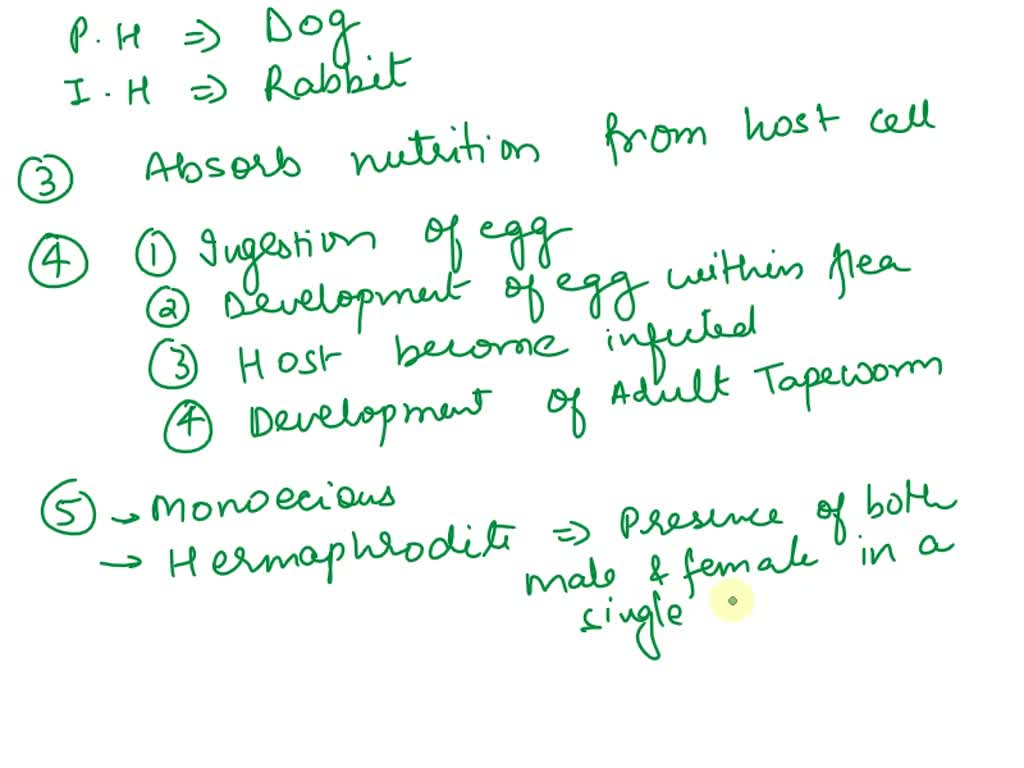 P.H => Dog
I.H => Rabbit
③ Absorb nutrition from host cell
④ ① Ingestion of egg
② Development of egg within flea
③ Host become infected
④ Development of Adult Tapeworm
⑤ → Monoecious
→ Hermaphrodite => Presence of both
male & female in a
single